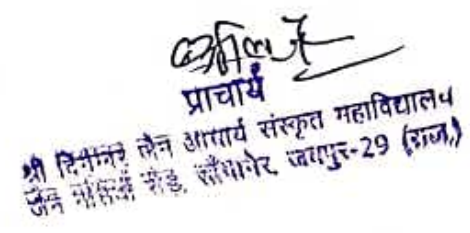 प्राचार्य
श्री दिगम्बर जैन आचार्य संस्कृत महाविद्यालय
जैन नसियां रोड, साँगानेर, जयपुर-29 (राज.)